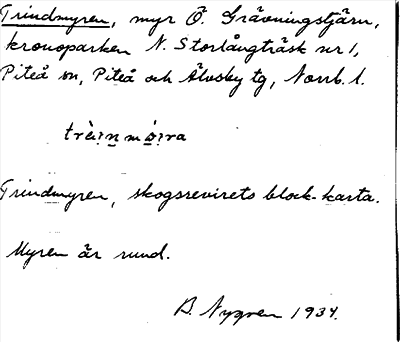 Trindmyren, myr Ö. Grävningstjärn,
kronoparken N. Storlångträsk nr 1,
Piteå sn, Piteå och Älvsby tg, Norrb. l.
Trindmyren, skogsrevirets block-karta.
Myren är rund.
B. Nygren 1934.